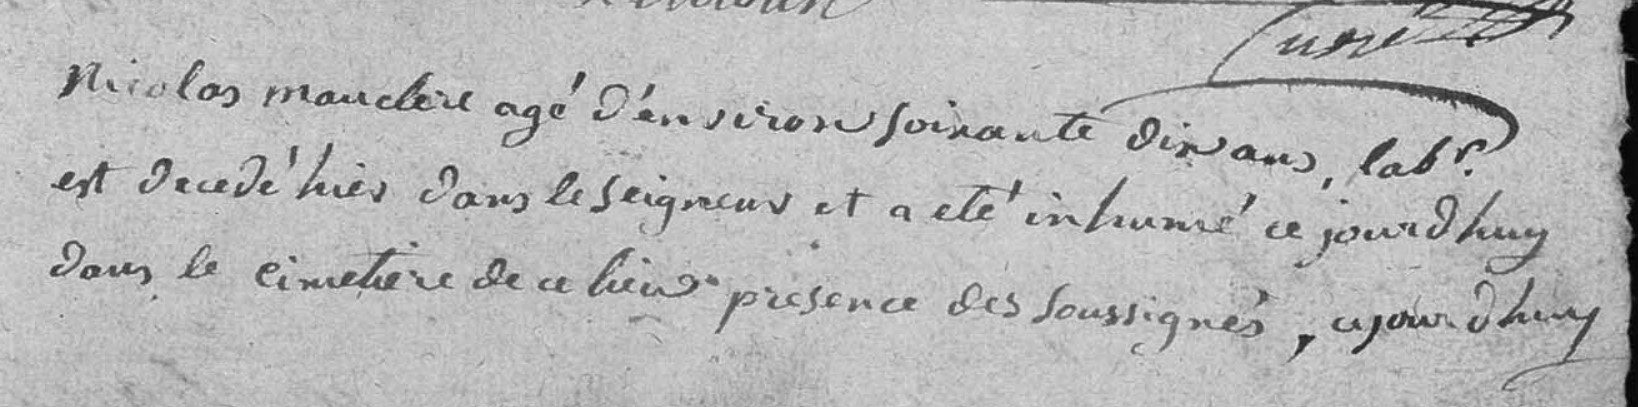 Curé
Nicolas mauclere agé d'environ soixante dix ans, lab.r
est decedé hier dans le seigneur et a eté inhumé ce jourdhuy
dans le cimetiere de ce lieu presence des soussignés, cejourdhuy